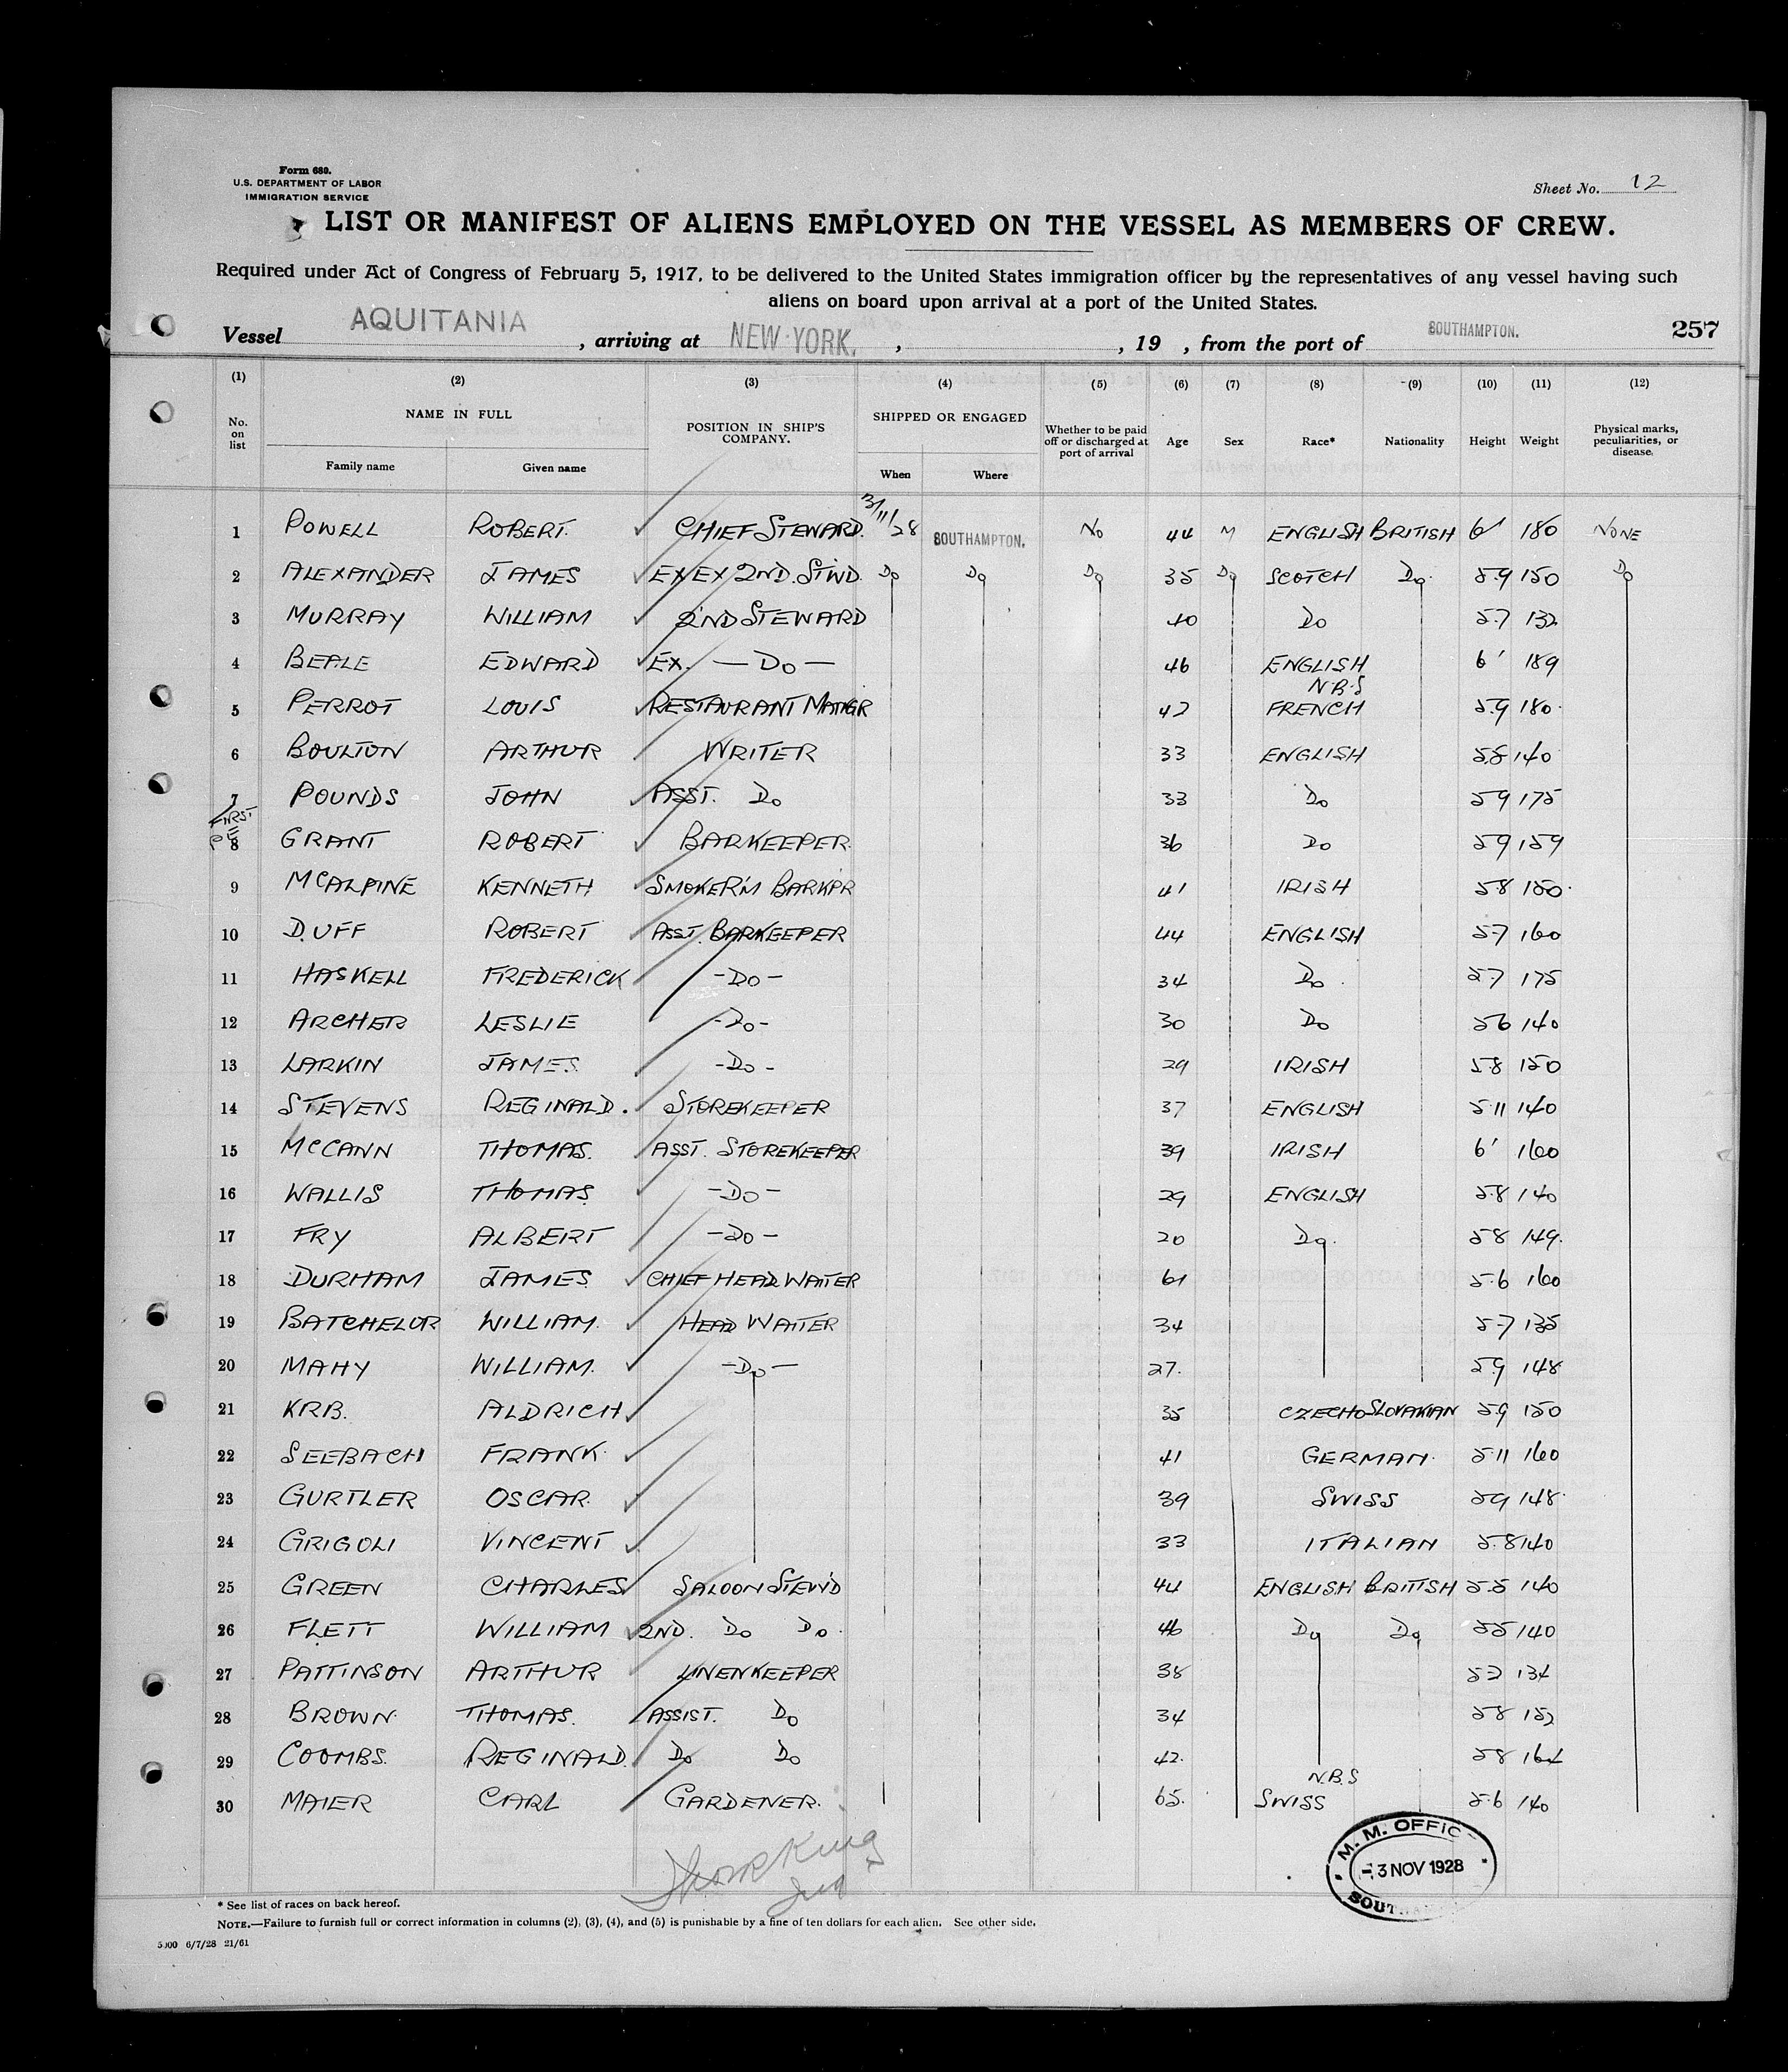 Form 689.
U.S. DEPARTMENT OF LABOR
IMMIGRATION SERVICE
Sheet No. 12
LIST OR MANIFEST OF ALIENS EMPLOYED ON THE VESSEL AS MEMBERS OF CREW.
Required under Act of Congress of February 5, 1917, to be delivered to the United States immigration officer by the representatives of any vessel having such
aliens on board upon arrival at a port of the United States.
Vessel AQUITANIA, arriving at NEW YORK, , 19 , from the port of SOUTHAMPTON. 257
(1) (2) (3) (4) (5) (6) (7) (8) (9) (10) (11) (12)
No. on list NAME IN FULL POSITION IN SHIP'S COMPANY. SHIPPED OR ENGAGED Whether to be paid off or discharged at port of arrival Age Sex Race* Nationality Height Weight Physical marks, peculiarities, or disease
Family name Given name When Where
1 POWELL ROBERT. CHIEF STEWARD. 3/11/28 SOUTHAMPTON. No 44 M ENGLISH BRITISH 6' 180 NONE
2 ALEXANDER JAMES EX EX 2ND. STWD. Do Do Do 35 Do SCOTCH Do. 5.9 150 Do
3 MURRAY WILLIAM 2ND STEWARD 40 Do 5.7 132
4 BEALE EDWARD EX. — Do — 46 ENGLISH 6' 189
N.B.S
5 PERROT LOUIS RESTAURANT MANGR 42 FRENCH 5.9 180
6 BOULTON ARTHUR WRITER 33 ENGLISH 5.8 140
7 POUNDS JOHN ASST. Do 33 Do 5.9 175
FIRST
8 GRANT ROBERT BARKEEPER. 36 Do 5.9 159
9 McALPINE KENNETH SMOKER'M BARKPR 41 IRISH 5.8 150
10 DUFF ROBERT ASST. BARKEEPER 44 ENGLISH 5.7 160
11 HASKELL FREDERICK - Do - 34 Do 5.7 175
12 ARCHER LESLIE - Do - 30 Do 5.6 140
13 LARKIN JAMES - Do - 29 IRISH 5.8 150
14 STEVENS REGINALD. STOREKEEPER 37 ENGLISH 5.11 140
15 McCANN THOMAS. ASST. STOREKEEPER 39 IRISH 6' 160
16 WALLIS THOMAS - Do - 29 ENGLISH 5.8 140
17 FRY ALBERT - Do - 20 Do. 5.8 149.
18 DURHAM JAMES CHIEF HEAD WAITER 61 5.6 160
19 BATCHELOR WILLIAM. HEAD WAITER 34 5.7 135
20 MAHY WILLIAM. - Do - 27. 5.9 148
21 KRB. ALDRICH 35 CZECHOSLOVAKIAN 5.9 150
22 SEEBACH FRANK. 41 GERMAN. 5.11 160
23 GURTLER OSCAR. 39 SWISS 5.9 148
24 GRIGOLI VINCENT 33 ITALIAN 5.8 140
25 GREEN CHARLES SALOON STEW'D 44 ENGLISH BRITISH 5.5 140
26 FLETT WILLIAM 2ND. Do Do. 46 Do Do 5.5 140
27 PATTINSON ARTHUR LINENKEEPER 38 5.7 134
28 BROWN THOMAS. ASSIST. Do 34 5.8 152
29 COOMBS. REGINALD. Do Do 42. 5.8 164
N.B.S
30 MAIER CARL GARDENER. 65. SWISS 5.6 140
M. M. OFFIC
3 NOV 1928
SOUT
* See list of races on back hereof.
NOTE.—Failure to furnish full or correct information in columns (2), (3), (4), and (5) is punishable by a fine of ten dollars for each alien. See other side.
5000 6/7/28 21/61